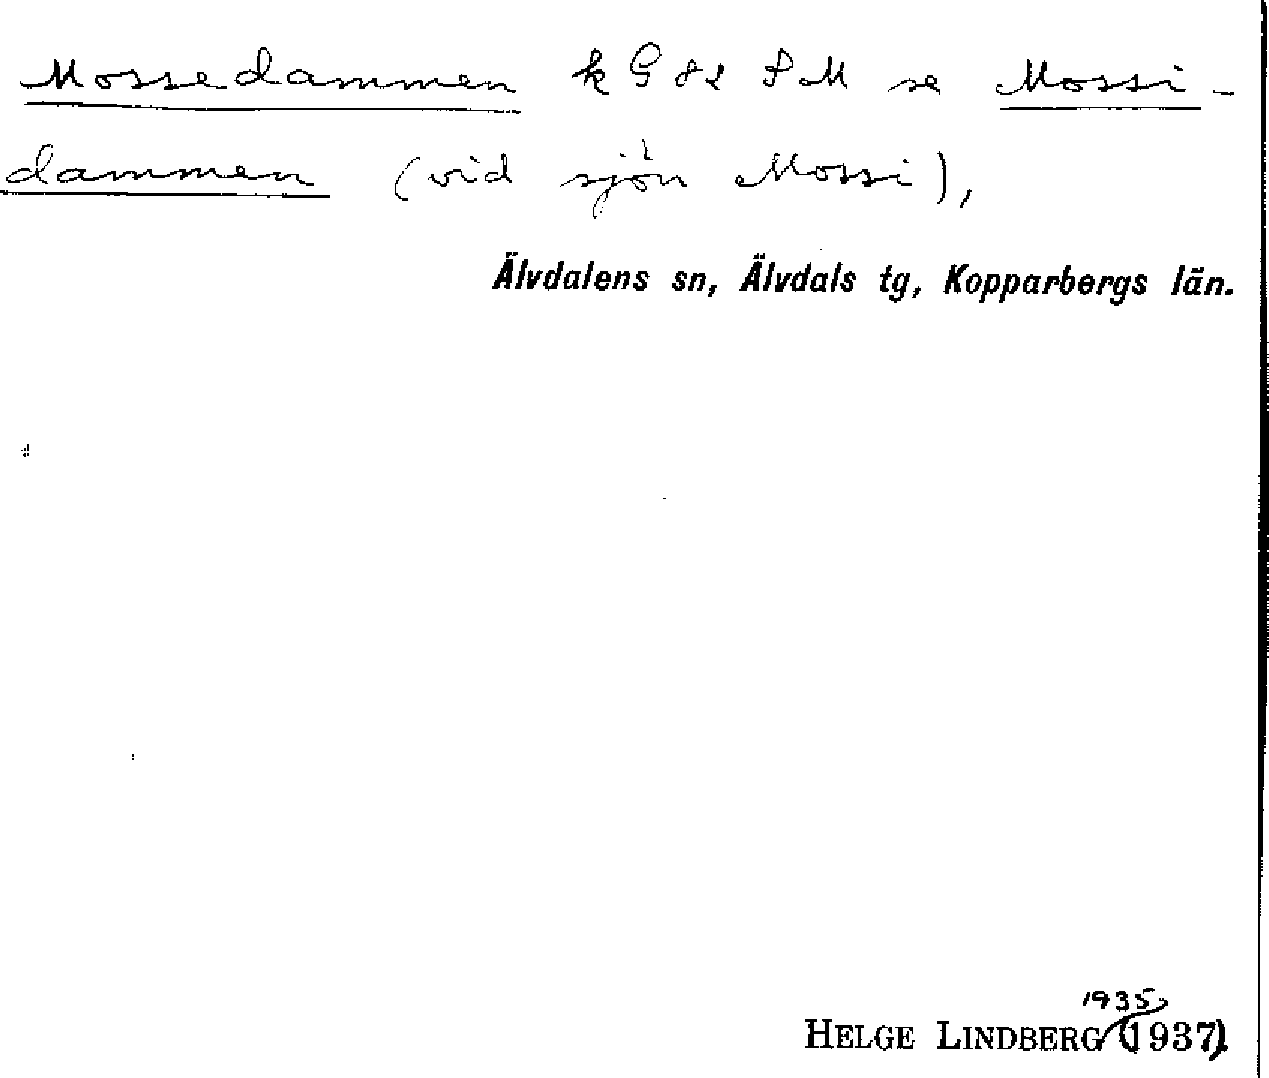 Mossedammen k G 82 SM se Mossi-
dammen (vid sjön Mossi),
Älvdalens sn, Älvdals tg, Kopparbergs län.
1935
HELGE LINDBERG (1937)